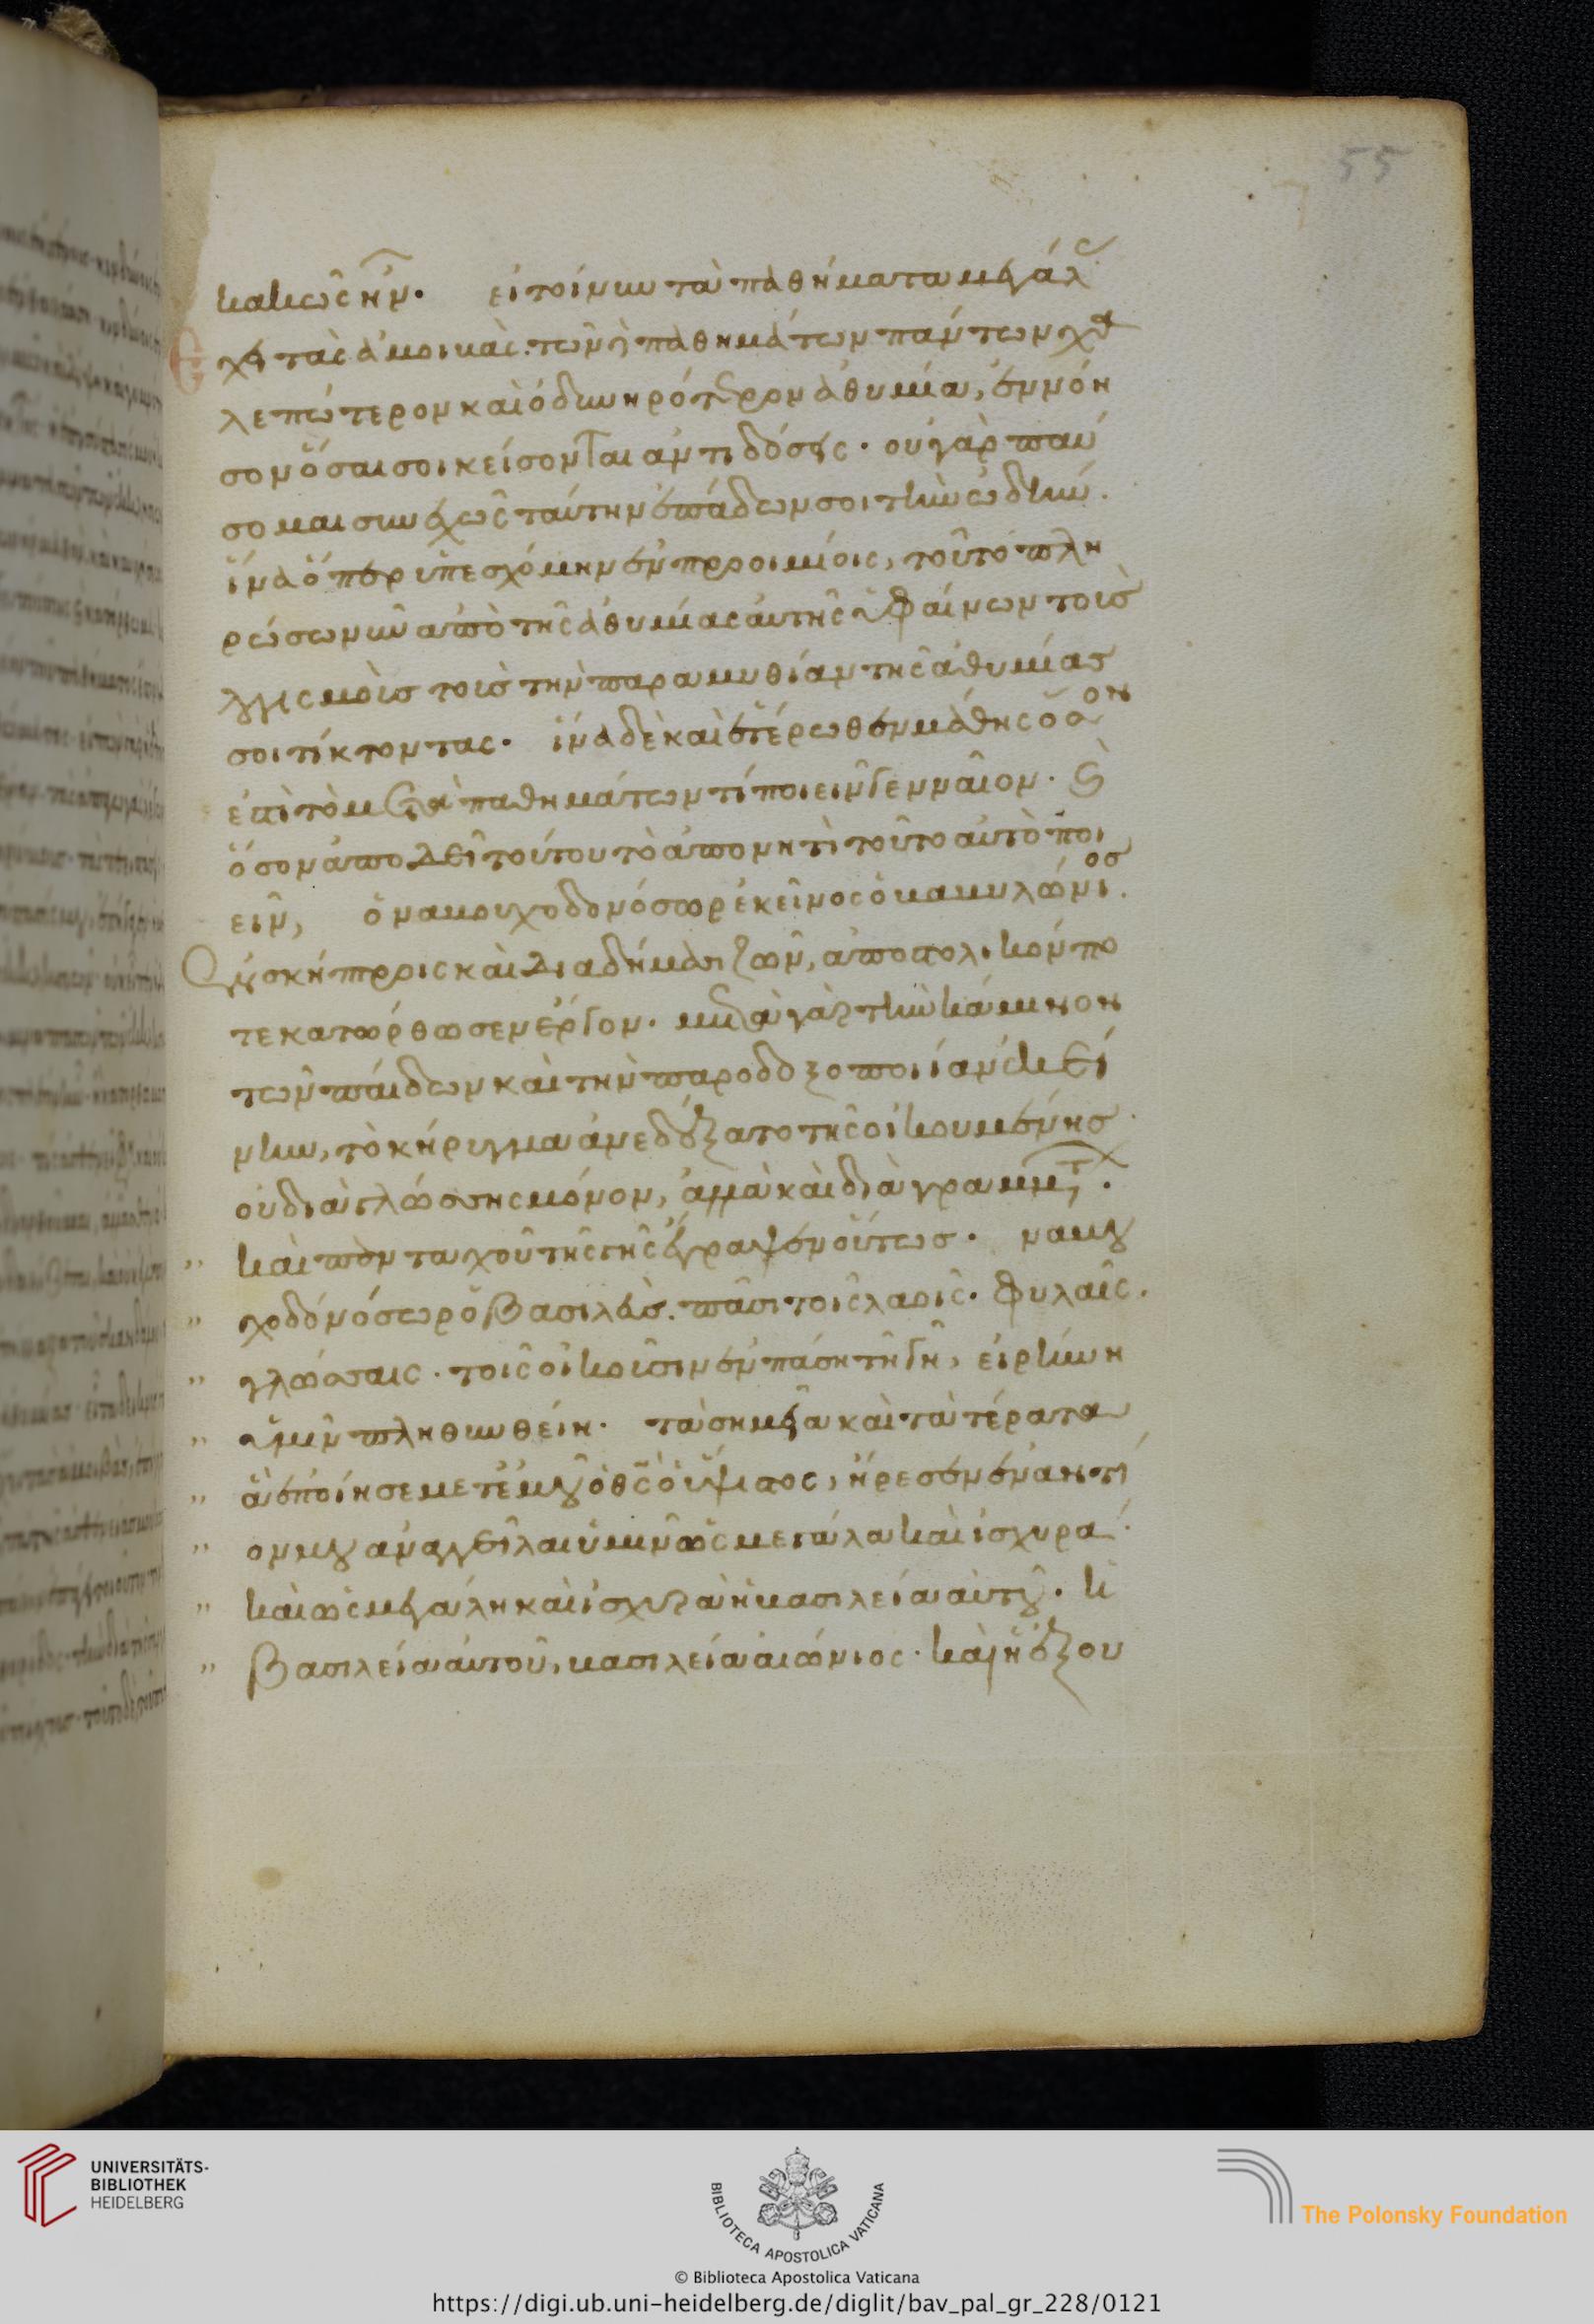 55
κακῶς ἦν. εἰ τοίνυν τὰ παθήματα μεγάλ
ἔχει τὰς ἀμοιβάς. τῶν δὲ παθημάτων πάντων χα
λεπώτερον καὶ ὀδυνηρότερον ἀθυμία, ἐννόη
σον ὅσαι σοι κείσονται ἀντιδόσεις. οὐ γὰρ παύ
σομαι συνεχῶς ταύτην ἐπάδων σοι τὴν ὠδήν.
ἵνα ὅπερ ὑπεσχόμην ἐν προοιμίοις, τοῦτο πλη
ρώσω νῦν ἀπὸ τῆς ἀθυμίας αὐτῆς ὑφαίνων τοὺς
λογισμοὺς τοὺς τὴν παραμυθίαν τῆς ἀθυμίας
σοι τίκτοντας. ἵνα δὲ καὶ ἑτέρωθεν μάθῃς ὅσον
ἐστὶ τὸ μετὰ παθημάτων τί ποιεῖν γενναῖον. καὶ
ὅσον ἀποδεῖ τούτου τὸ ἄπονητὶ τοῦτο αὐτὸ ποι
εῖν, ὁ ναβουχοδονόσωρ ἐκεῖνος ὁ βαβυλώνιος
ἐν σκήπτροις καὶ διαδήμασι ζῶν, ἀποστολικόν πο
τε κατώρθωσεν ἔργον. μετὰ γὰρ τὴν κάμινον
τῶν παίδων καὶ τὴν παραδοξοποιίαν ἐκεί
νην, τὸ κήρυγμα ἀνεδέξατο τῆς οἰκουμένης
οὐ διὰ γλώσσης μόνον, ἀλλὰ καὶ διὰ γραμμάτων.
" καὶ πανταχοῦ τῆς γῆς ἔγραψεν οὕτως. ναβου
" χοδονόσωρ ὁ βασιλεὺς. πᾶσι τοῖς λαοῖς. φυλαῖς.
" γλώσσαις. τοῖς οἰκοῦσιν ἐν πάσῃ τῇ γῇ, εἰρήνη
" ὑμῖν πληθυνθείη. τὰ σημεῖα καὶ τὰ τέρατα
" ἃ ἐποίησε μετ' ἐμοῦ ὁ θς ὁ ὕψιστος, ἤρεσεν ἐναντί
" ον μου ἀναγγεῖλαι ὑμῖν ὡς μεγάλα καὶ ἰσχυρά.
" καὶ ὡς μεγάλη καὶ ἰσχυρὰ ἡ βασιλεία αὐτοῦ. κ
" βασιλεία αὐτοῦ, βασιλεία αἰώνιος. καὶ ἡ ἐξου
UNIVERSITÄTS-
BIBLIOTHEK
HEIDELBERG
BIBLIOTECA APOSTOLICA VATICANA
© Biblioteca Apostolica Vaticana
The Polonsky Foundation
https://digi.ub.uni-heidelberg.de/diglit/bav_pal_gr_228/0121